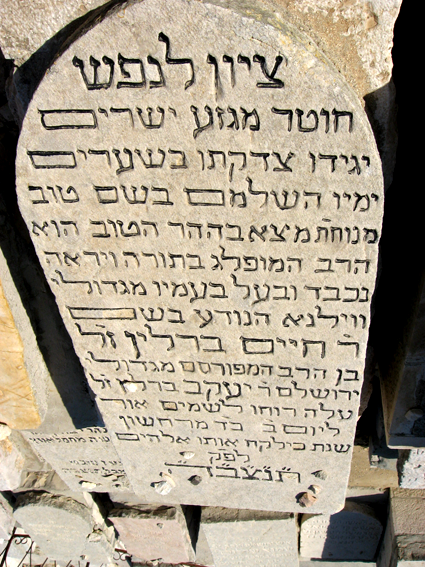 ציון לנפש
חוטר מגזע ישרים
יגידו צדקתו בשערים
ימיו השלמם בשם טוב
מנוחת מצא בהר הטוב הוא
הרב המופלג בתורה ויראה
נכבד ובעל בעמיו מגדולי
ווילנא הנודע בשם
ר׳ חיים ברלין זל
בן הרב המפורסם מגדולי
ירושלם ר׳ יעקב ברלין זל
עלה רוחו לשמים אור
ליום ב׳ כד מרחשון
שנת כי לקח אותו אלהים
לפק
ת׳נ׳צ׳ב׳ה׳